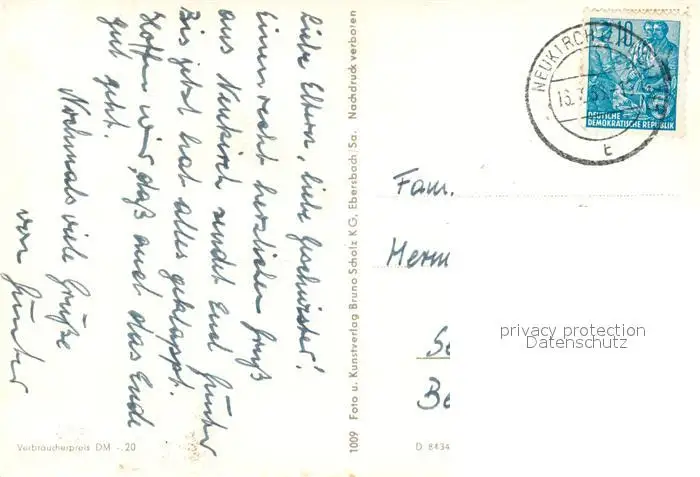 Liebe Eltern, liebe Geschwister!
Einen recht herzlichen Gruß
aus Neukirch sendet Euch Günter
Bis jetzt hat alles geklappt.
Hoffen wir, daß auch das Ende
gut geht.
Nochmals viele Grüße
von Günter
Verbraucherpreis DM -.20
1009 Foto u. Kunstverlag Bruno Scholz KG, Ebersbach/Sa. Nachdruck verboten
NEUKIRCH
t
10
DEUTSCHE
DEMOKRATISCHE REPUBLIK
Fam.
Herm
privacy protection
Datenschutz
D 8434